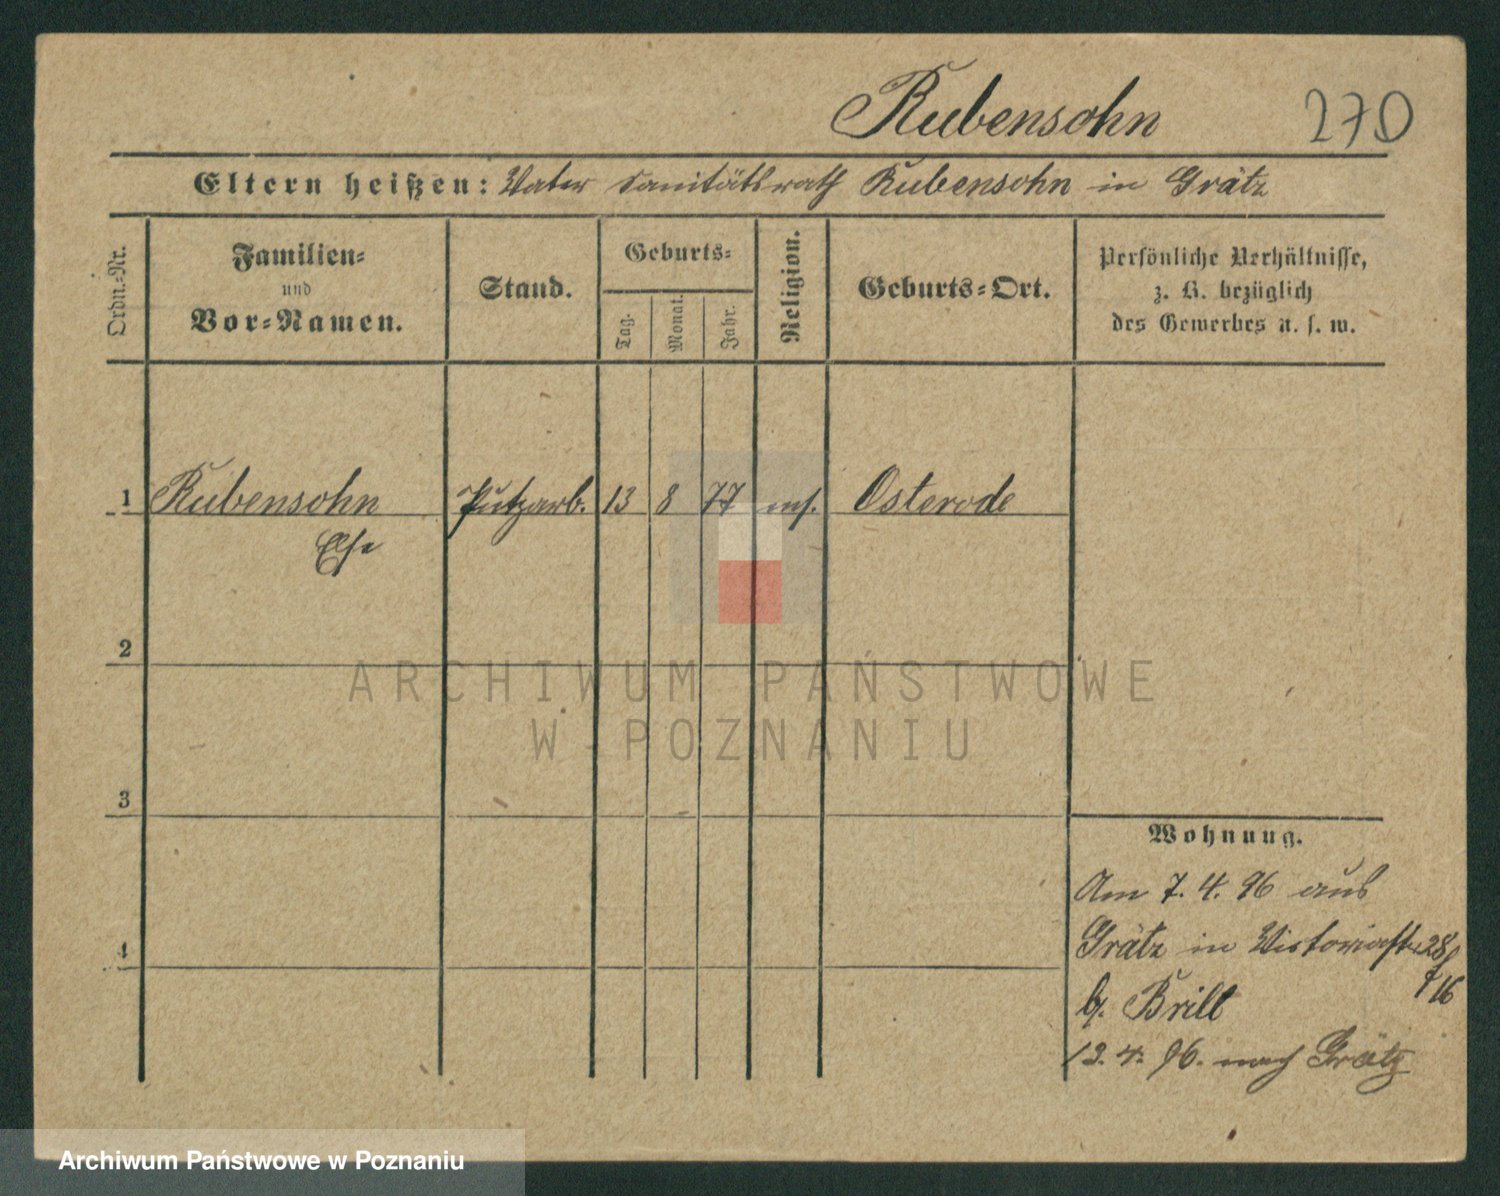 Rubensohn 270
Eltern heißen: Vater Sanitätsrath Rubensohn in Grätz
Ordn.-Nr.
Familien-
und
Vor-Namen.
Stand.
Geburts-
Tag.
Monat.
Jahr.
Religion.
Geburts-Ort.
Persönliche Verhältnisse,
z. B. bezüglich
des Gewerbes u. s. w.
1 Rubensohn Putzarb. 13 8 77 mos. Osterode
Else
2
ARCHIWUM PAŃSTWOWE
W POZNANIU
3
Wohnung.
Am 7. 4. 96 aus
4
Grätz in Victoriastr 28/
16
b. Brill
12. 4. 96. nach Grätz
Archiwum Państwowe w Poznaniu